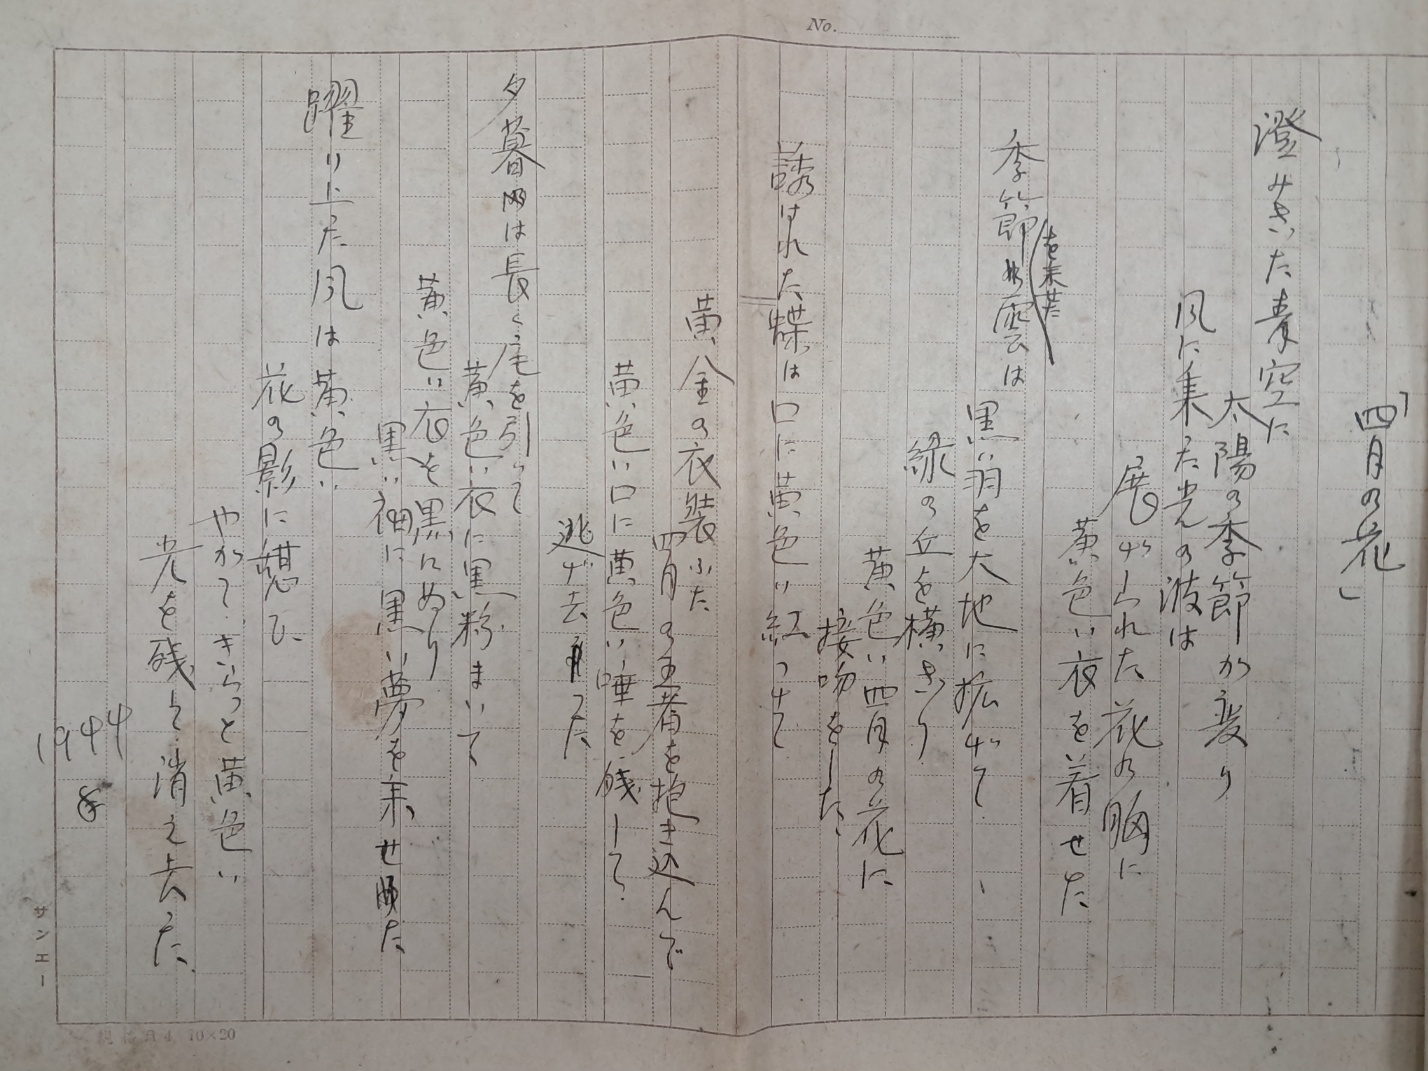 No.
「四月の花」
澄みきった青空に
太陽の季節が変り
風に乗った光の波は
展げられた花の胸に
黄色い衣を着せた
季節を乗せた雲は
黒い羽を大地に拡げて
緑の丘を横きり
黄色い四月の花に
接吻をした
誘はれた蝶は口に黄色い紅つけて
黄金の衣装ふた
四月の王者を抱き込んで
黄色い口に黄色い唾を残して
逃げ去った
夕暮は長く尾を引いて
黄色い衣に黒粉まいて
黄色い衣を黒にぬり
黒い袖に黒い夢を乗せた
躍り上った風は黄色い
花の影に憩ひ
やがて きらっと黄色い
光を残して消え去った
1944
サンエー
10×20